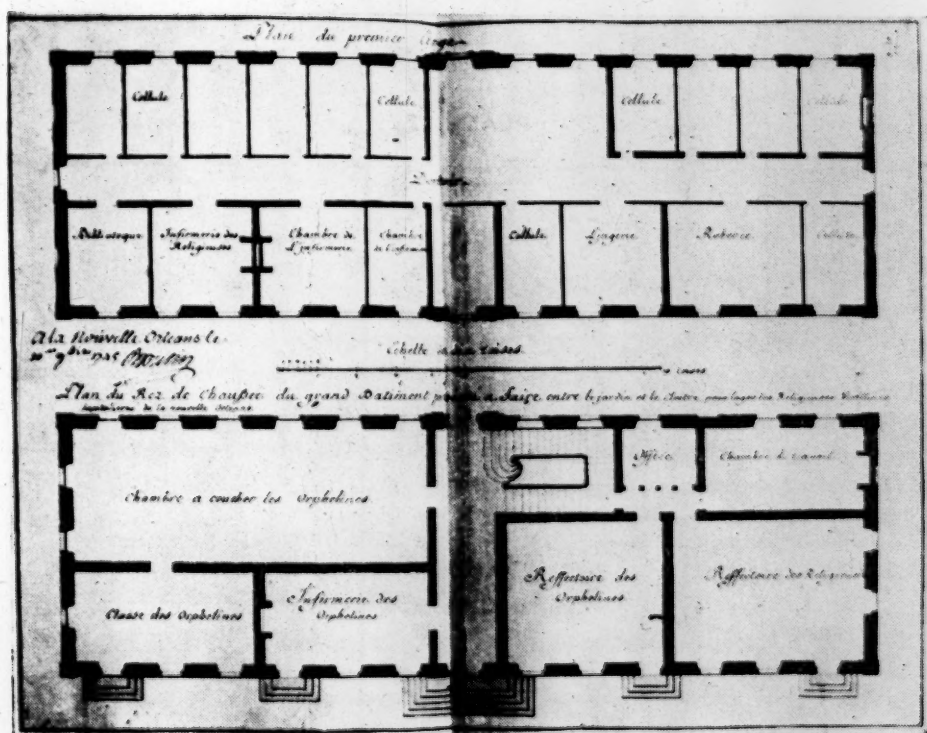 Plan du premier étage
Cellule
Cellule
Cellule
Cellule
Dortoir
Biblioteque
Infirmerie des
Religieuses
Chambre de
L'infirmerie
Chambre
Cellule
Lingerie
Roberie
Cellule
A la Nouvelle Orleans le
9bre 1745
Echelle de toises
toises
Plan du Rez de Chaussée du grand Batiment a faire entre le jardin et le pour loger les Religieuses
de la nouvelle Orleans
Chambre a coucher les Orphelines
Office
Chambre
Classe des Orphelines
Infirmerie des
Orphelines
Reffectoire des
Orphelines
Reffectoire des Religieuses